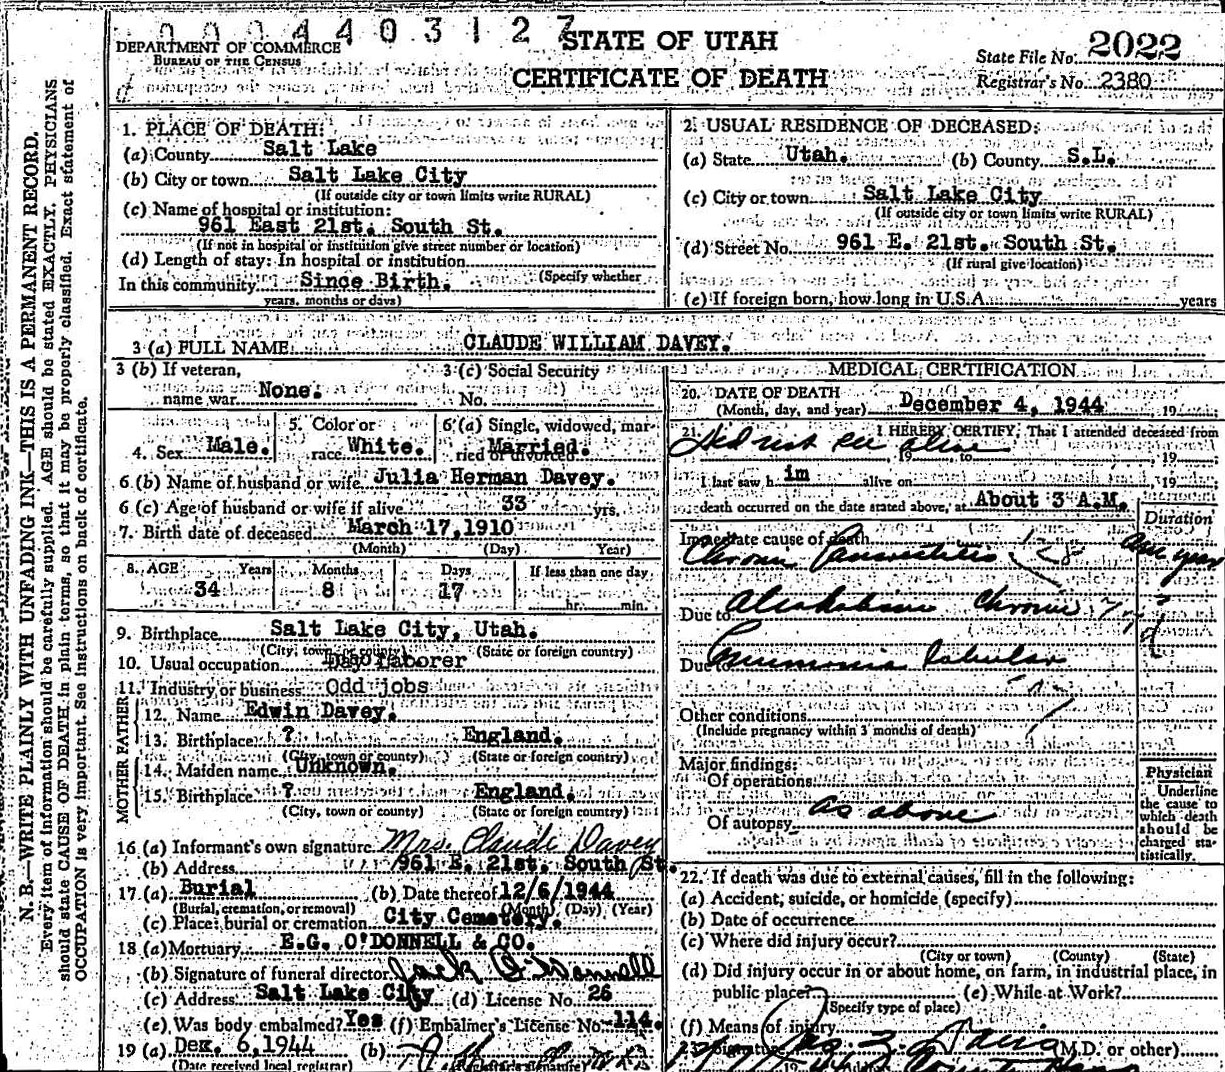 0004403127
DEPARTMENT OF COMMERCE
BUREAU OF THE CENSUS
STATE OF UTAH
CERTIFICATE OF DEATH
State File No. 2022
Registrar's No. 2380
N. B.—WRITE PLAINLY WITH UNFADING INK—THIS IS A PERMANENT RECORD.
Every item of information should be carefully supplied. AGE should be stated EXACTLY. PHYSICIANS
should state CAUSE OF DEATH in plain terms, so that it may be properly classified. Exact statement of
OCCUPATION is very important. See instructions on back of certificate.
1. PLACE OF DEATH:
(a) County Salt Lake
(b) City or town Salt Lake City
(If outside city or town limits write RURAL)
(c) Name of hospital or institution:
961 East 21st. South St.
(If not in hospital or institution give street number or location)
(d) Length of stay: In hospital or institution
(Specify whether
In this community Since Birth.
years, months or days)
2. USUAL RESIDENCE OF DECEASED:
(a) State Utah. (b) County S.L.
(c) City or town Salt Lake City
(If outside city or town limits write RURAL)
(d) Street No. 961 E. 21st. South St.
(If rural give location)
(e) If foreign born, how long in U.S.A. years
3 (a) FULL NAME CLAUDE WILLIAM DAVEY.
3 (b) If veteran,
name war None.
3 (c) Social Security
No.
4. Sex Male.
5. Color or
race White.
6 (a) Single, widowed, mar-
ried or divorced Married.
6 (b) Name of husband or wife Julia Herman Davey.
6 (c) Age of husband or wife if alive 33 yrs.
7. Birth date of deceased March 17, 1910
(Month) (Day) Year)
8. AGE Years Months Days If less than one day
34 8 17 hr. min.
9. Birthplace Salt Lake City, Utah.
(City, town or county) (State or foreign country)
10. Usual occupation Laborer
11. Industry or business Odd jobs
FATHER
12. Name Edwin Davey.
13. Birthplace ? England.
(City, town or county) (State or foreign country)
MOTHER
14. Maiden name Unknown.
15. Birthplace ? England.
(City, town or county) (State or foreign country)
16 (a) Informant's own signature Mrs. Claude Davey
(b) Address 961 E. 21st. South St.
17 (a) Burial (b) Date thereof 12/6/1944
(Burial, cremation, or removal) (Month) (Day) (Year)
(c) Place: burial or cremation City Cemetery.
18 (a) Mortuary E.G. O'DONNELL & CO.
(b) Signature of funeral director Jack O'Donnell
(c) Address Salt Lake City (d) License No. 26
(e) Was body embalmed? Yes (f) Embalmer's License No. 114.
19 (a) Dex. 6, 1944 (b)
(Date received local registrar) (Registrar's signature)
MEDICAL CERTIFICATION
20. DATE OF DEATH
(Month, day, and year) December 4, 1944 19
21. I HEREBY CERTIFY, That I attended deceased from
Did not see alive 19 to , 19
I last saw h im alive on , 19
death occurred on the date stated above, at About 3 A.M.
Duration
Immediate cause of death
Chronic Pancreatitis 128 one year
Due to Alcoholism Chronic
Due to Pneumonia lobular
Other conditions
(Include pregnancy within 3 months of death)
Major findings:
Of operations
Of autopsy as above
Physician
Underline
the cause to
which death
should be
charged sta-
tistically.
22. If death was due to external causes, fill in the following:
(a) Accident, suicide, or homicide (specify)
(b) Date of occurrence
(c) Where did injury occur?
(City or town) (County) (State)
(d) Did injury occur in or about home, on farm, in industrial place, in
public place? (e) While at Work?
(Specify type of place)
(f) Means of injury
23. Signature (M.D. or other)
19 Address County